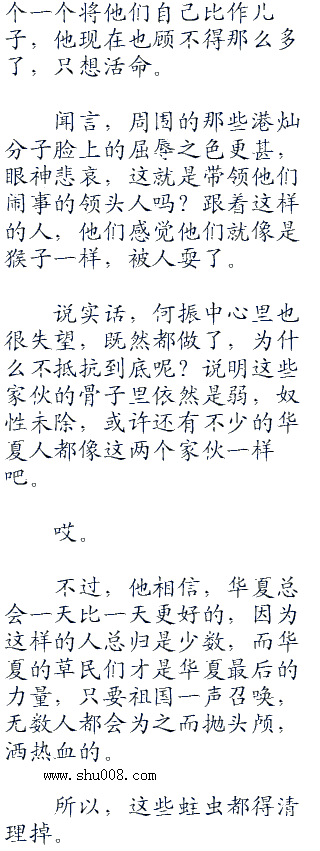 个一个将他们自己比作儿
子，他现在也顾不得那么多
了，只想活命。
闻言，周围的那些港灿
分子脸上的屈辱之色更甚，
眼神悲哀，这就是带领他们
闹事的领头人吗？跟着这样
的人，他们感觉他们就像是
猴子一样，被人耍了。
说实话，何振中心里也
很失望，既然都做了，为什
么不抵抗到底呢？说明这些
家伙的骨子里依然是弱，奴
性未除，或许还有不少的华
夏人都像这两个家伙一样
吧。
哎。
不过，他相信，华夏总
会一天比一天更好的，因为
这样的人总归是少数，而华
夏的草民们才是华夏最后的
力量，只要祖国一声召唤，
无数人都会为之而抛头颅，
洒热血的。
www.shu008.com
所以，这些蛀虫都得清
理掉。